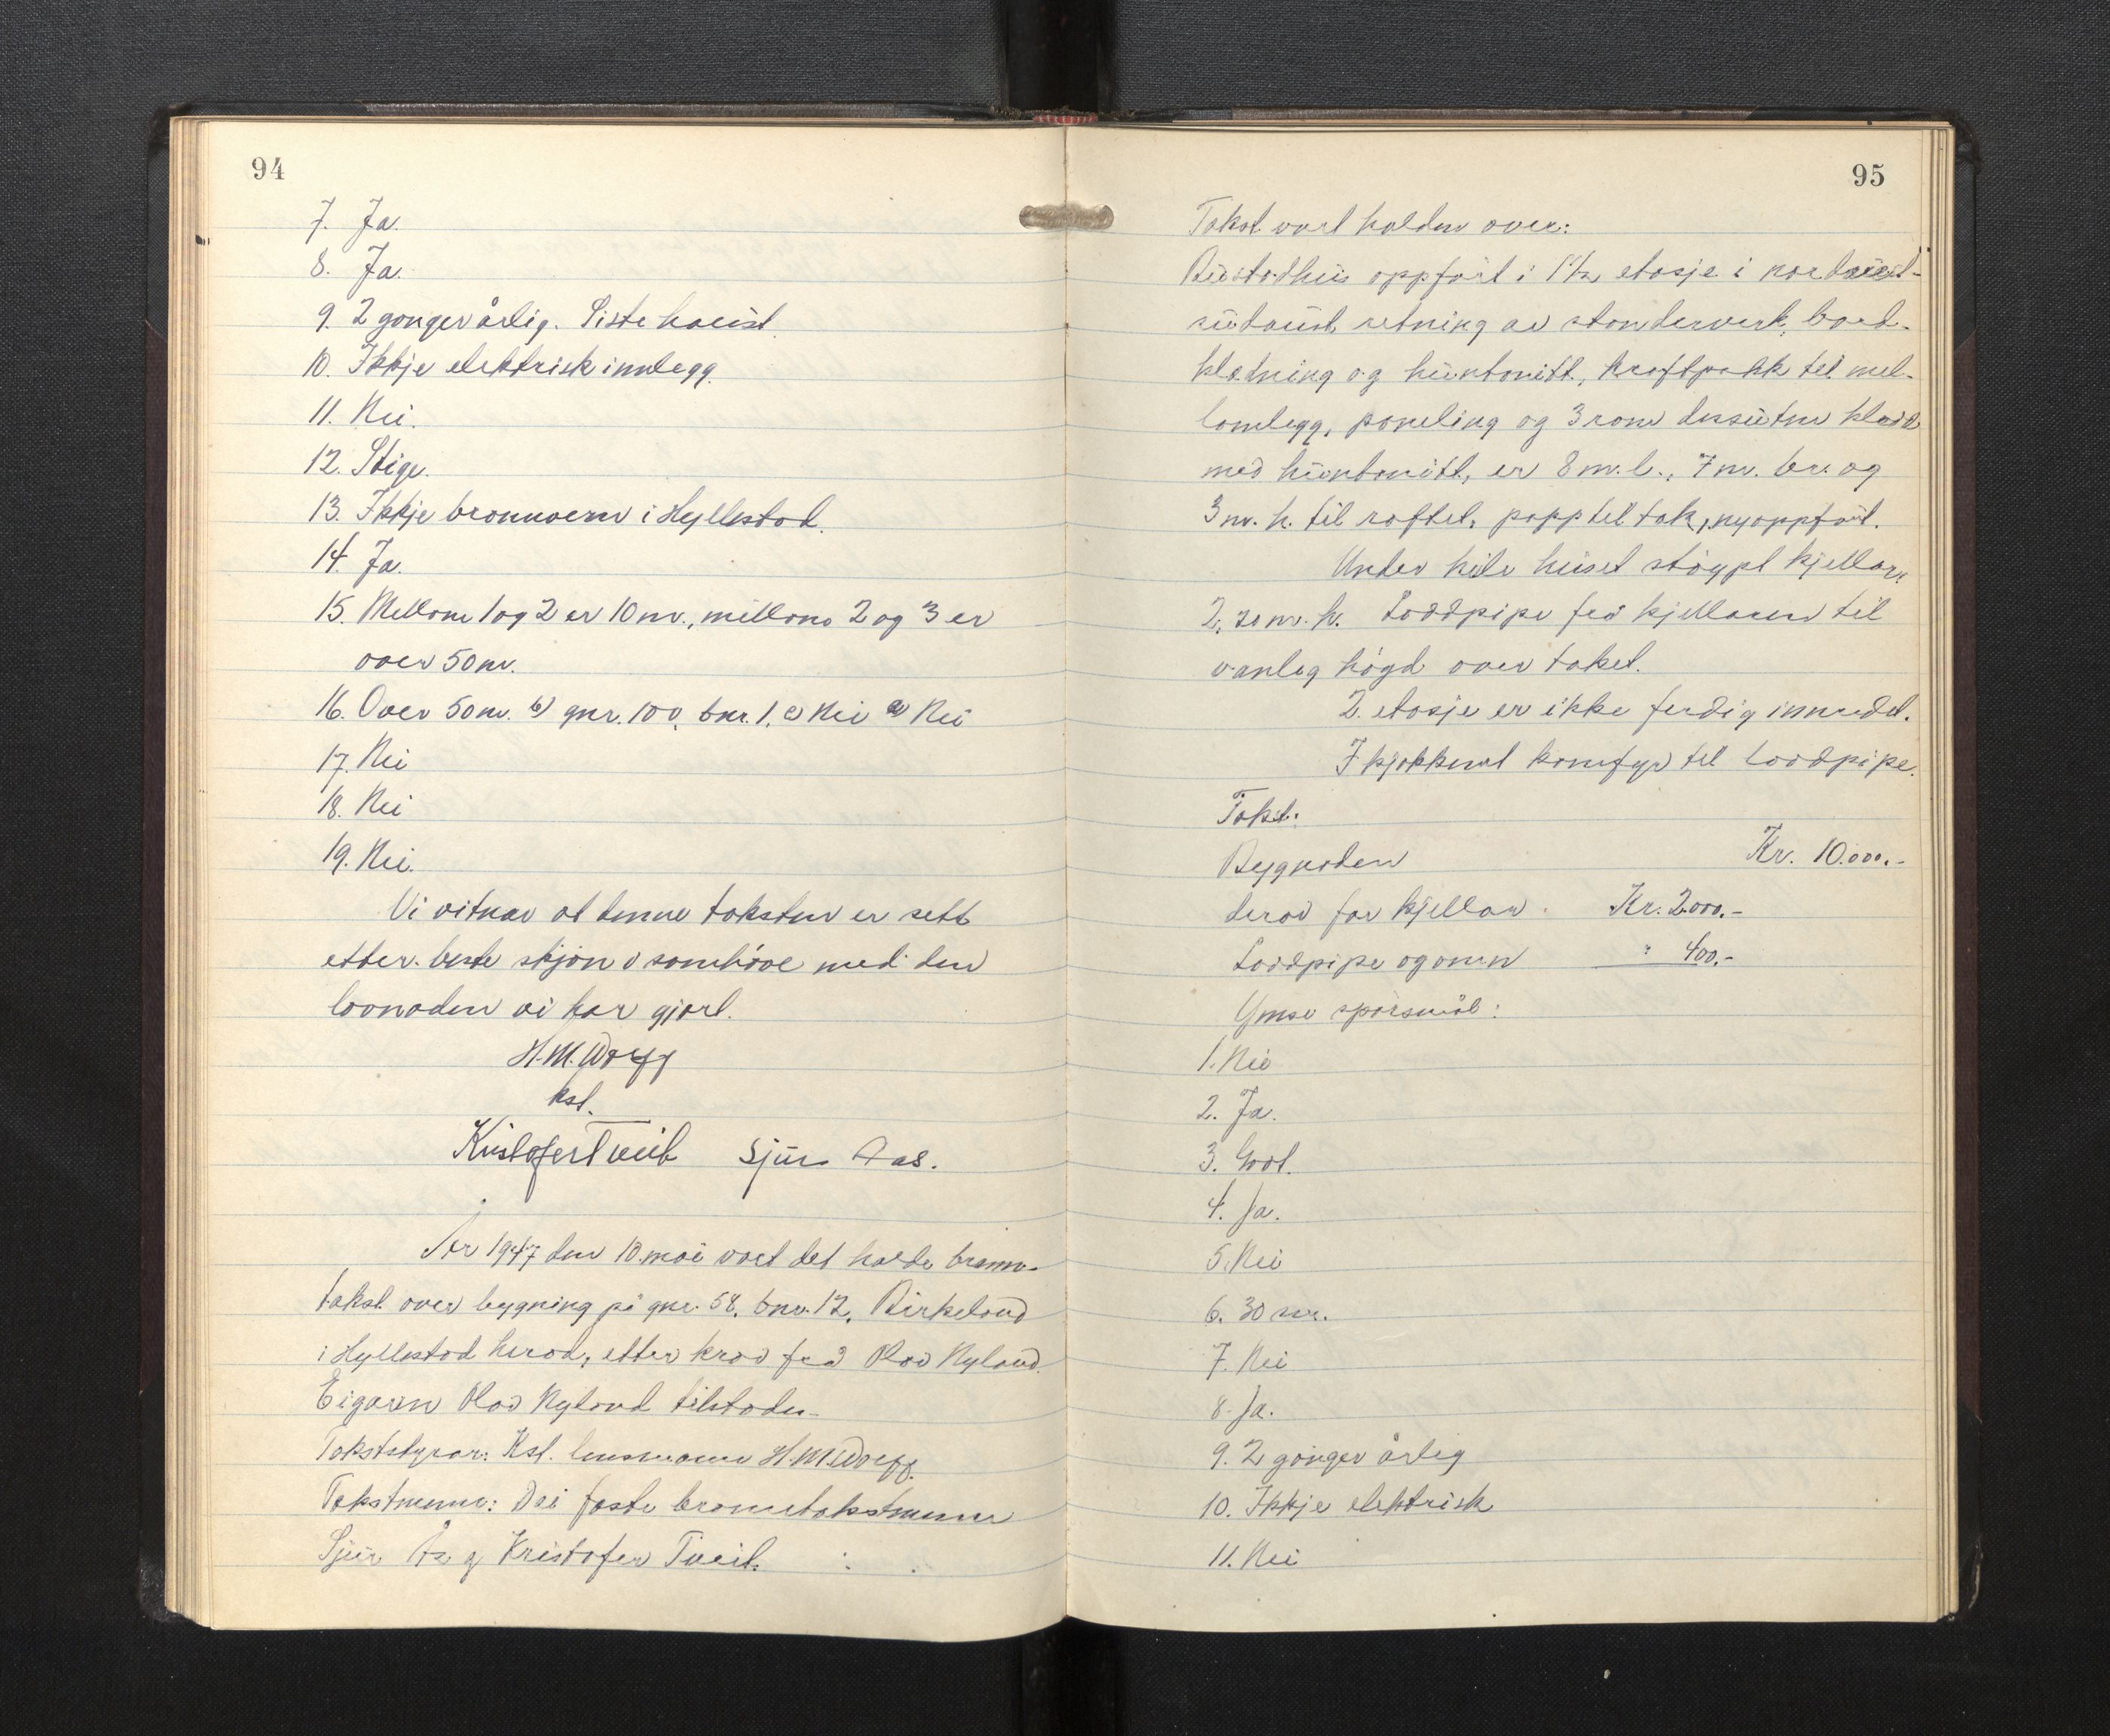 94
7. Ja.
8. Ja.
9. 2 gonger årlig. Siste haust.
10. Ikkje elektrisk innlegg.
11. Nei.
12. Stige.
13. Ikkje brannvern i Hyllestad.
14. Ja.
15. Mellom 1 og 2 er 10 m., mellom 2 og 3 er
over 50 m.
16. Over 50 m. b) gnr. 100, bnr. 1. c) Nei d) Nei
17. Nei
18. Nei
19. Nei.
Vi vitnar at denne taksten er sett
etter beste skjøn o samhøve med den
lovnaden vi har gjort.
H. M. Worff
kst.
Kristofer Tveit Sjur Aas.
År 1947 den 10. mai vart det halde brann-
takst over bygning på gnr. 58, bnr. 12, Birkeland
i Hyllestad herad, etter krav frå Olav Nyland.
Eigaren Olav Nyland tilstades.
Takststyrar: Kst. lensmann H. M. Worff.
Takstmenn: Dei faste branntakstmenn
Sjur Ås og Kristofer Tveit.
95
Takst vart halden over:
Bustadhus oppført i 1½ etasje i nordaust-
sudaust retning av stenderverk, bord-
kledning og huntonitt, kraftpapp til mel-
lomlegg, paneling og 3 rom dessuten kledd
med huntonitt, er 8 m. l., 7 m. br. og
3 m. h. til raftet, papp til tak, nyoppført.
Under heile huset støypt kjellar,
2,20 m. h. Loddpipe frå kjellaren til
vanleg høgd over taket.
2. etasje er ikke ferdig innredet.
I kjøkkenet komfyr til loddpipe.
Takst:
Bygnaden Kr. 10.000.-
derav for kjellar. Kr. 2000.-
Loddpipe og omn " 400.-
Ymse spørsmål:
1. Nei
2. Ja.
3. Godt.
4. Ja.
5. Nei
6. 30 m.
7. Nei
8. Ja.
9. 2 gonger årleg
10. Ikkje elektrisk
11. Nei